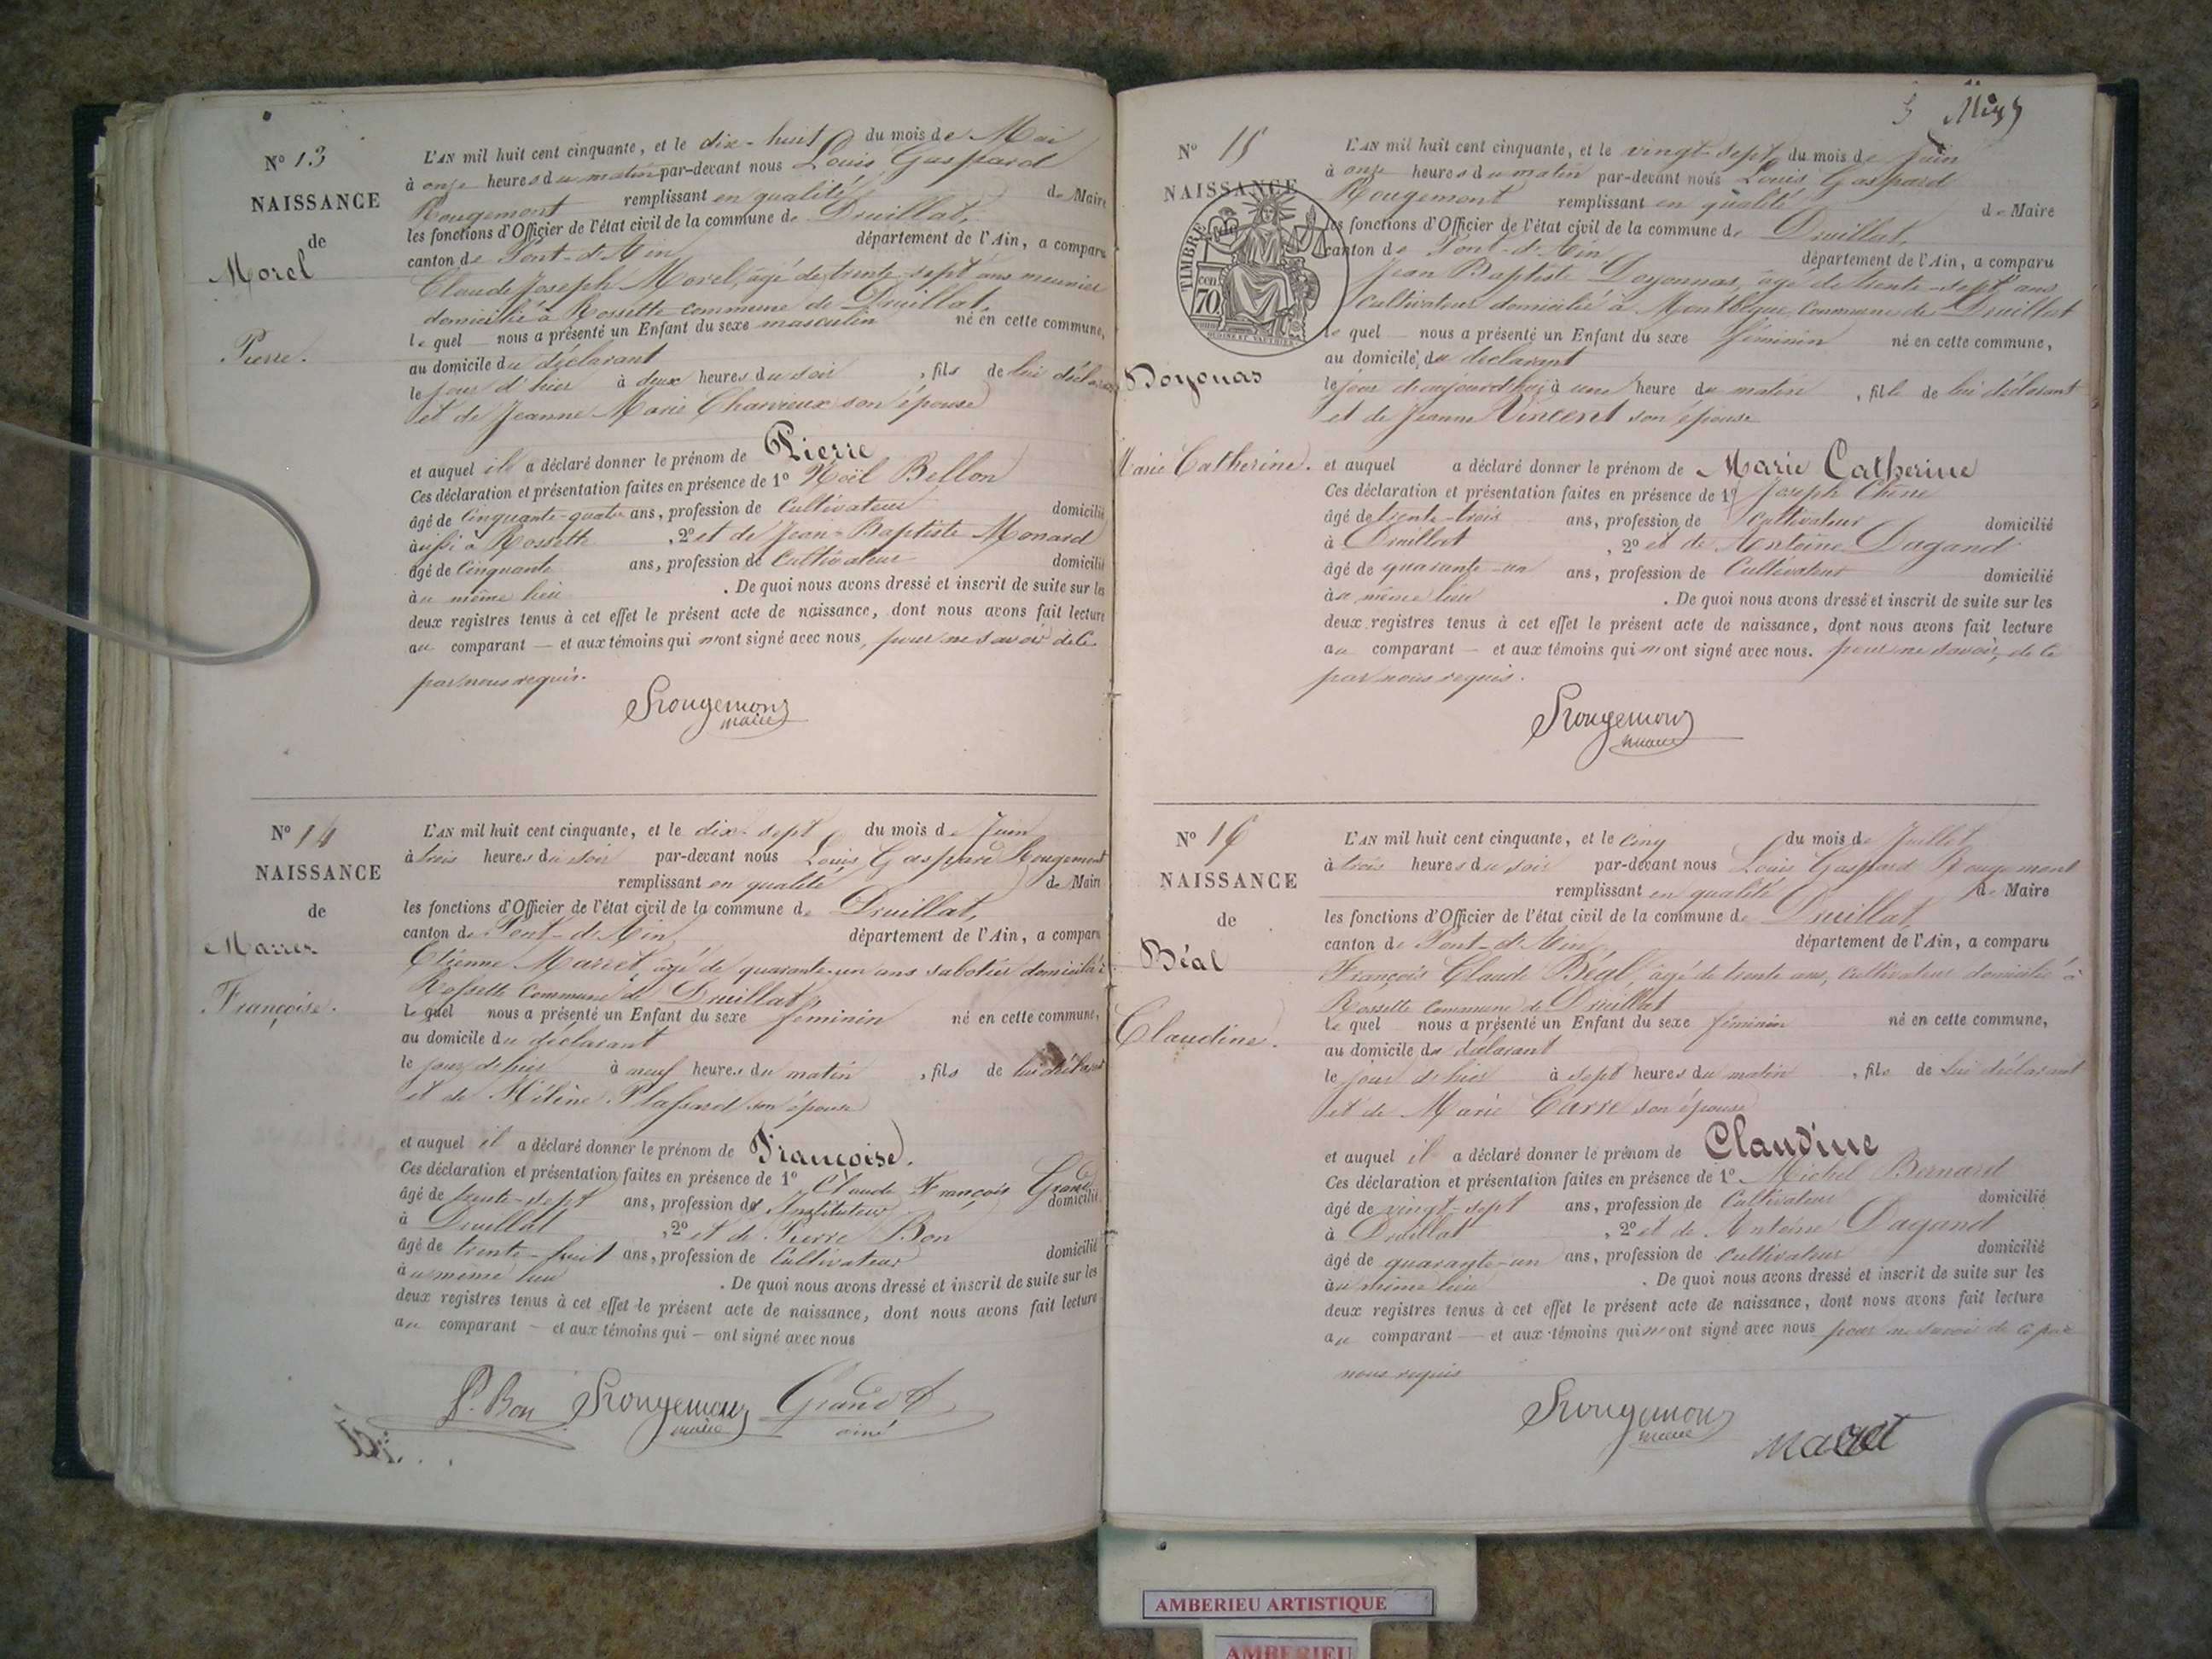 N° 13
NAISSANCE
de
Morel
Pierre.
L'AN mil huit cent cinquante, et le dix-huit du mois de Mai
à onze heures du matin par-devant nous Louis Gaspard
Rougemont remplissant en qualité de Maire
les fonctions d'Officier de l'état civil de la commune de Druillat,
canton de Pont-d'Ain département de l'Ain, a comparu
Claude Joseph Morel, âgé de trente-sept ans meunier
domicilié à Rossette commune de Druillat,
lequel nous a présenté un Enfant du sexe masculin né en cette commune,
au domicile du déclarant
le jour d'hier à deux heures du soir, fils de lui
et de Jeanne Marie Charvieux son épouse
et auquel il a déclaré donner le prénom de Pierre
Ces déclaration et présentation faites en présence de 1° Noël Bellon
âgé de Cinquante-quatre ans, profession de Cultivateur domicilié
aussi à Rossette, 2° et de Jean-Baptiste Monard
âgé de Cinquante ans, profession de Cultivateur domicilié
au même lieu. De quoi nous avons dressé et inscrit de suite sur les
deux registres tenus à cet effet le présent acte de naissance, dont nous avons fait lecture
au comparant — et aux témoins qui n'ont signé avec nous, pour ne savoir de ce
par nous requis.
Rougemont
maire
N° 14
NAISSANCE
de
Marret
Françoise.
L'AN mil huit cent cinquante, et le dix-sept du mois de Juin
à trois heures du soir par-devant nous Louis Gaspard Rougemont
remplissant en qualité de Maire
les fonctions d'Officier de l'état civil de la commune de Druillat,
canton de Pont-d'Ain département de l'Ain, a comparu
Etienne Marret, âgé de quarante-un ans sabotier domicilié à
Rossette Commune de Druillat,
lequel nous a présenté un Enfant du sexe féminin né en cette commune,
au domicile du déclarant
le jour d'hier à neuf heures du matin, fils de lui déclarant
et de Mélène Plassard son épouse
et auquel il a déclaré donner le prénom de Françoise.
Ces déclaration et présentation faites en présence de 1° Claude François Grand
âgé de trente-sept ans, profession de Instituteur domicilié
à Druillat, 2° et de Pierre Bon
âgé de trente-huit ans, profession de Cultivateur domicilié
au même lieu. De quoi nous avons dressé et inscrit de suite sur les
deux registres tenus à cet effet le présent acte de naissance, dont nous avons fait lecture
au comparant — et aux témoins qui — ont signé avec nous
P. Bon Rougemont Grand
maire ainé
N° 15
NAISSANCE
de
TIMBRE
70 cen
Doyonas
Marie Catherine.
L'AN mil huit cent cinquante, et le vingt-sept du mois de Juin
à onze heures du matin par-devant nous Louis Gaspard
Rougemont remplissant en qualité de Maire
les fonctions d'Officier de l'état civil de la commune de Druillat,
canton de Pont-d'Ain département de l'Ain, a comparu
Jean Baptiste Doyonnas, âgé de trente-sept ans
cultivateur domicilié à Commune de Druillat
le quel nous a présenté un Enfant du sexe féminin né en cette commune,
au domicile du déclarant
le jour d'aujourd'hui à une heure du matin, fille de lui déclarant
et de Jeanne Vincent son épouse
et auquel a déclaré donner le prénom de Marie Catherine
Ces déclaration et présentation faites en présence de 1° Joseph Chêne
âgé de trente-trois ans, profession de Cultivateur domicilié
à Druillat, 2° et de Antoine Dagand
âgé de quarante-un ans, profession de Cultivateur domicilié
au même lieu. De quoi nous avons dressé et inscrit de suite sur les
deux registres tenus à cet effet le présent acte de naissance, dont nous avons fait lecture
au comparant — et aux témoins qui n'ont signé avec nous. pour ne savoir, de ce
par nous requis.
Rougemont
maire
N° 16
NAISSANCE
de
Béal
Claudine.
L'AN mil huit cent cinquante, et le Cinq du mois de Juillet
à trois heures du soir par-devant nous Louis Gaspard Rougemont
remplissant en qualité de Maire
les fonctions d'Officier de l'état civil de la commune de Druillat,
canton de Pont-d'Ain département de l'Ain, a comparu
François Claude Béal, âgé de trente ans, Cultivateur domicilié à
Rossette Commune de Druillat
le quel nous a présenté un Enfant du sexe féminin né en cette commune,
au domicile du déclarant
le jour d'hier à sept heures du matin, fils de lui déclarant
et de Marie Carre son épouse
et auquel il a déclaré donner le prénom de Claudine
Ces déclaration et présentation faites en présence de 1° Michel Bernard
âgé de vingt-sept ans, profession de Cultivateur domicilié
à Druillat, 2° et de Antoine Dagand
âgé de quarante-un ans, profession de Cultivateur domicilié
au même lieu. De quoi nous avons dressé et inscrit de suite sur les
deux registres tenus à cet effet le présent acte de naissance, dont nous avons fait lecture
au comparant — et aux témoins qui n'ont signé avec nous pour ne savoir de ce par
nous requis
Rougemont
maire
Marret
AMBERIEU ARTISTIQUE
AMBERIEU